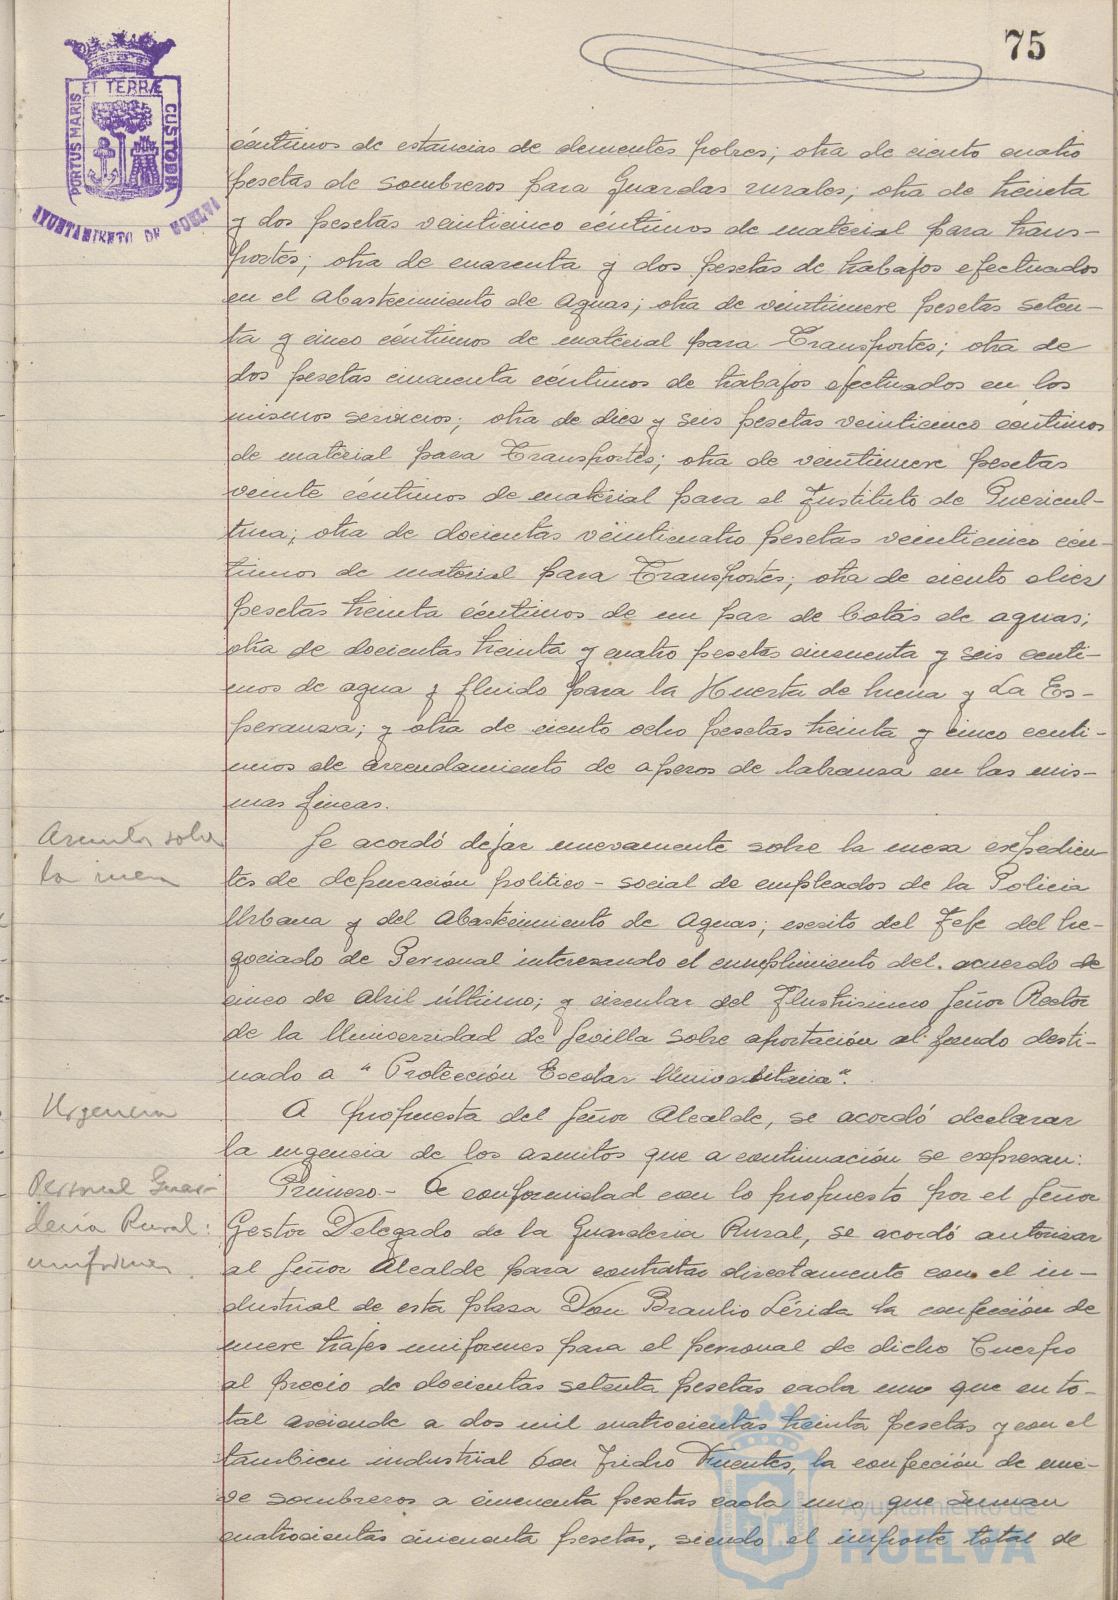 75
PORTUS MARIS ET TERRÆ CUSTODIA
AYUNTAMIENTO DE HUELVA
céntimos de estancias de dementes pobres; otra de ciento cuatro
pesetas de sombreros para Guardas rurales; otra de treinta
y dos pesetas veinticinco céntimos de material para trans-
portes; otra de cuarenta y dos pesetas de trabajos efectuados
en el Abastecimiento de Aguas; otra de veintinueve pesetas seten-
ta y cinco céntimos de material para Transportes; otra de
dos pesetas cincuenta céntimos de trabajos efectuados en los
mismos servicios; otra de diez y seis pesetas veinticinco céntimos
de material para Transportes; otra de veintinueve pesetas
veinte céntimos de material para el Instituto de Puericul-
tura; otra de docientas veinticuatro pesetas veinticinco cén-
timos de material para Transportes; otra de ciento diez
pesetas treinta céntimos de un par de botas de aguas;
otra de docientas treinta y cuatro pesetas cincuenta y seis centi-
mos de agua y fluido para la Huerta de Mena y La Es-
peranza; y otra de ciento ocho pesetas treinta y cinco centi-
mos de arrendamiento de aperos de labranza en las mis-
mas fincas.
Asuntos sobre
la mesa
Se acordó dejar nuevamente sobre la mesa expedien-
tes de depuración politico-social de empleados de la Policia
Urbana y del Abastecimiento de Aguas; escrito del Jefe del Ne-
gociado de Personal interesando el cumplimiento del acuerdo de
cinco de Abril último; y circular del Ilustrisimo Señor Rector
de la Universidad de Sevilla sobre aportación al fondo desti-
nado a "Protección Escolar Universitaria".
Urgencia
A propuesta del Señor Alcalde, se acordó declarar
la urgencia de los asuntos que a continuación se expresan:
Personal Guar-
deria Rural:
uniformes
Primero.- De conformidad con lo propuesto por el Señor
Gestor Delegado de la Guarderia Rural, se acordó autorizar
al Señor Alcalde para contratar directamente con el in-
dustrial de esta plaza Don Braulio Lérida la confección de
nueve trajes uniformes para el personal de dicho Cuerpo
al precio de docientas setenta pesetas cada uno que en to-
tal asciende a dos mil cuatrocientas treinta pesetas y con el
tambien industrial Don Isidro Fuentes, la confección de nue-
ve sombreros a cincuenta pesetas cada uno que suman
cuatrocientas cincuenta pesetas, siendo el importe total de
Ayuntamiento de
HUELVA